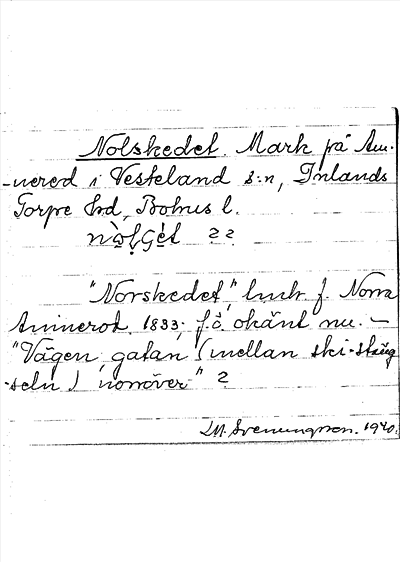 Nolskedet. Mark på Am-
-nered i Vesteland s:n, Inlands
Torpe hd, Bohus l.
nò̤l̥ɕèt ??
"Norskedet," huk f. Norra
Aminerod 1833; f.ö okänt nu. –
"Vägen, gatan (mellan ski-stäng
-seln) norröver" ?
I.M. Svenungsson. 1940.